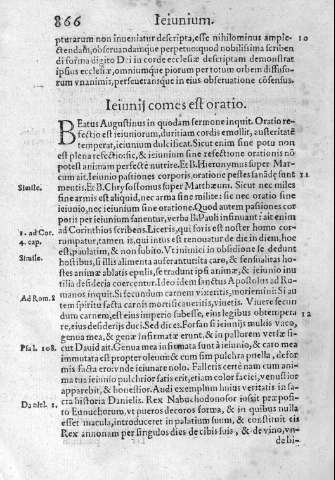 866 Ieiunium.
pturarum non inueniatur descripta, esse nihilominus ample- 10
ctendam, obseruandamque perpetuo: quod nobilissima scriben
di forma digito Dei in corde ecclesiæ descriptam demonstrat
ipsius ecclesiæ, omniumque piorum per totum orbem diffuso-
rum vnanimis, perseueransque in eius obseruatione cōsensus.
Ieiunij comes est oratio.
BEatus Augustinus in quodam sermone inquit. Oratio re-
fectio est ieiuniorum, duritiam cordis emollit, austeritatē
temperat, ieiunium dulcificat. Sicut enim sine potu non
est plena refectio: sic, & ieiunium sine refectione orationis nō
potest animam perfectè nutrire. Et B. Hieronymus super Mar-
cum ait. Ieiunio passiones corporis, oratione pestes sanādę sunt 11
Simile. mentis. Et B. Chrysostomus super Matthæum. Sicut nec miles
sine armis est aliquid, nec arma sine milite: sic nec oratio sine
ieiunio, nec ieiunium sine oratione. Quod autem passiones cor
poris per ieiunium sanentur, verba B. Pauli insinuant: ait enim
1. ad Cor. ad Corinthios scribens. Licet is, qui foris est noster homo cor-
4. cap. rumpatur, tamen is, qui intus est renouatur de die in diem, hoc
est, paulatim, & non subito. Vt inimici in obsidione se dedunt
Simile. hostibus, si illis alimenta auferantur: ita carè, & sensualitas ho-
stes animæ ablatis epulis, se tradunt ipsi animæ, & ieiunio inu
tilia desideria coercentur. Ideo idem sanctus Apostolus ad Ro-
Ad Rom. 8 manos inquit. Si secundum carnem vixeritis, moriemini: Si au
tem spiritu facta carnis mortificaueritis, viuetis. Viuere secun
dum carnem, est eius imperio subesse, eius legibus obtempera 12
re, eius desiderijs duci. Sed dices. Forsan si ieiunijs multis vaco,
genua mea, & genæ infirmatæ erunt, & in pallorem versæ si-
Psal. 108. cut Dauid ait. Genua mea infirmata sunt à ieiunio, & caro mea
immutata est propter oleum: & cum sim pulchra puella, defor
mis facta ero: vnde ieiunare nolo. Falleris certè nam cum ani-
ma tua ieiunio pulchrior fatis erit, etiam color faciei, venustior
apparebit, & honestior. Audi exemplum huius veritatis in sa-
Daniel. 1. cra historia Danielis. Rex Nabuchodonosor iussit præposi-
to Eunuchorum, vt pueros decoros forma, & in quibus nulla
esset macula, introduceret in palatium suum, & constituit eis
Rex annonam per singulos dies de cibis suis, & de vino, vn-
de bi-